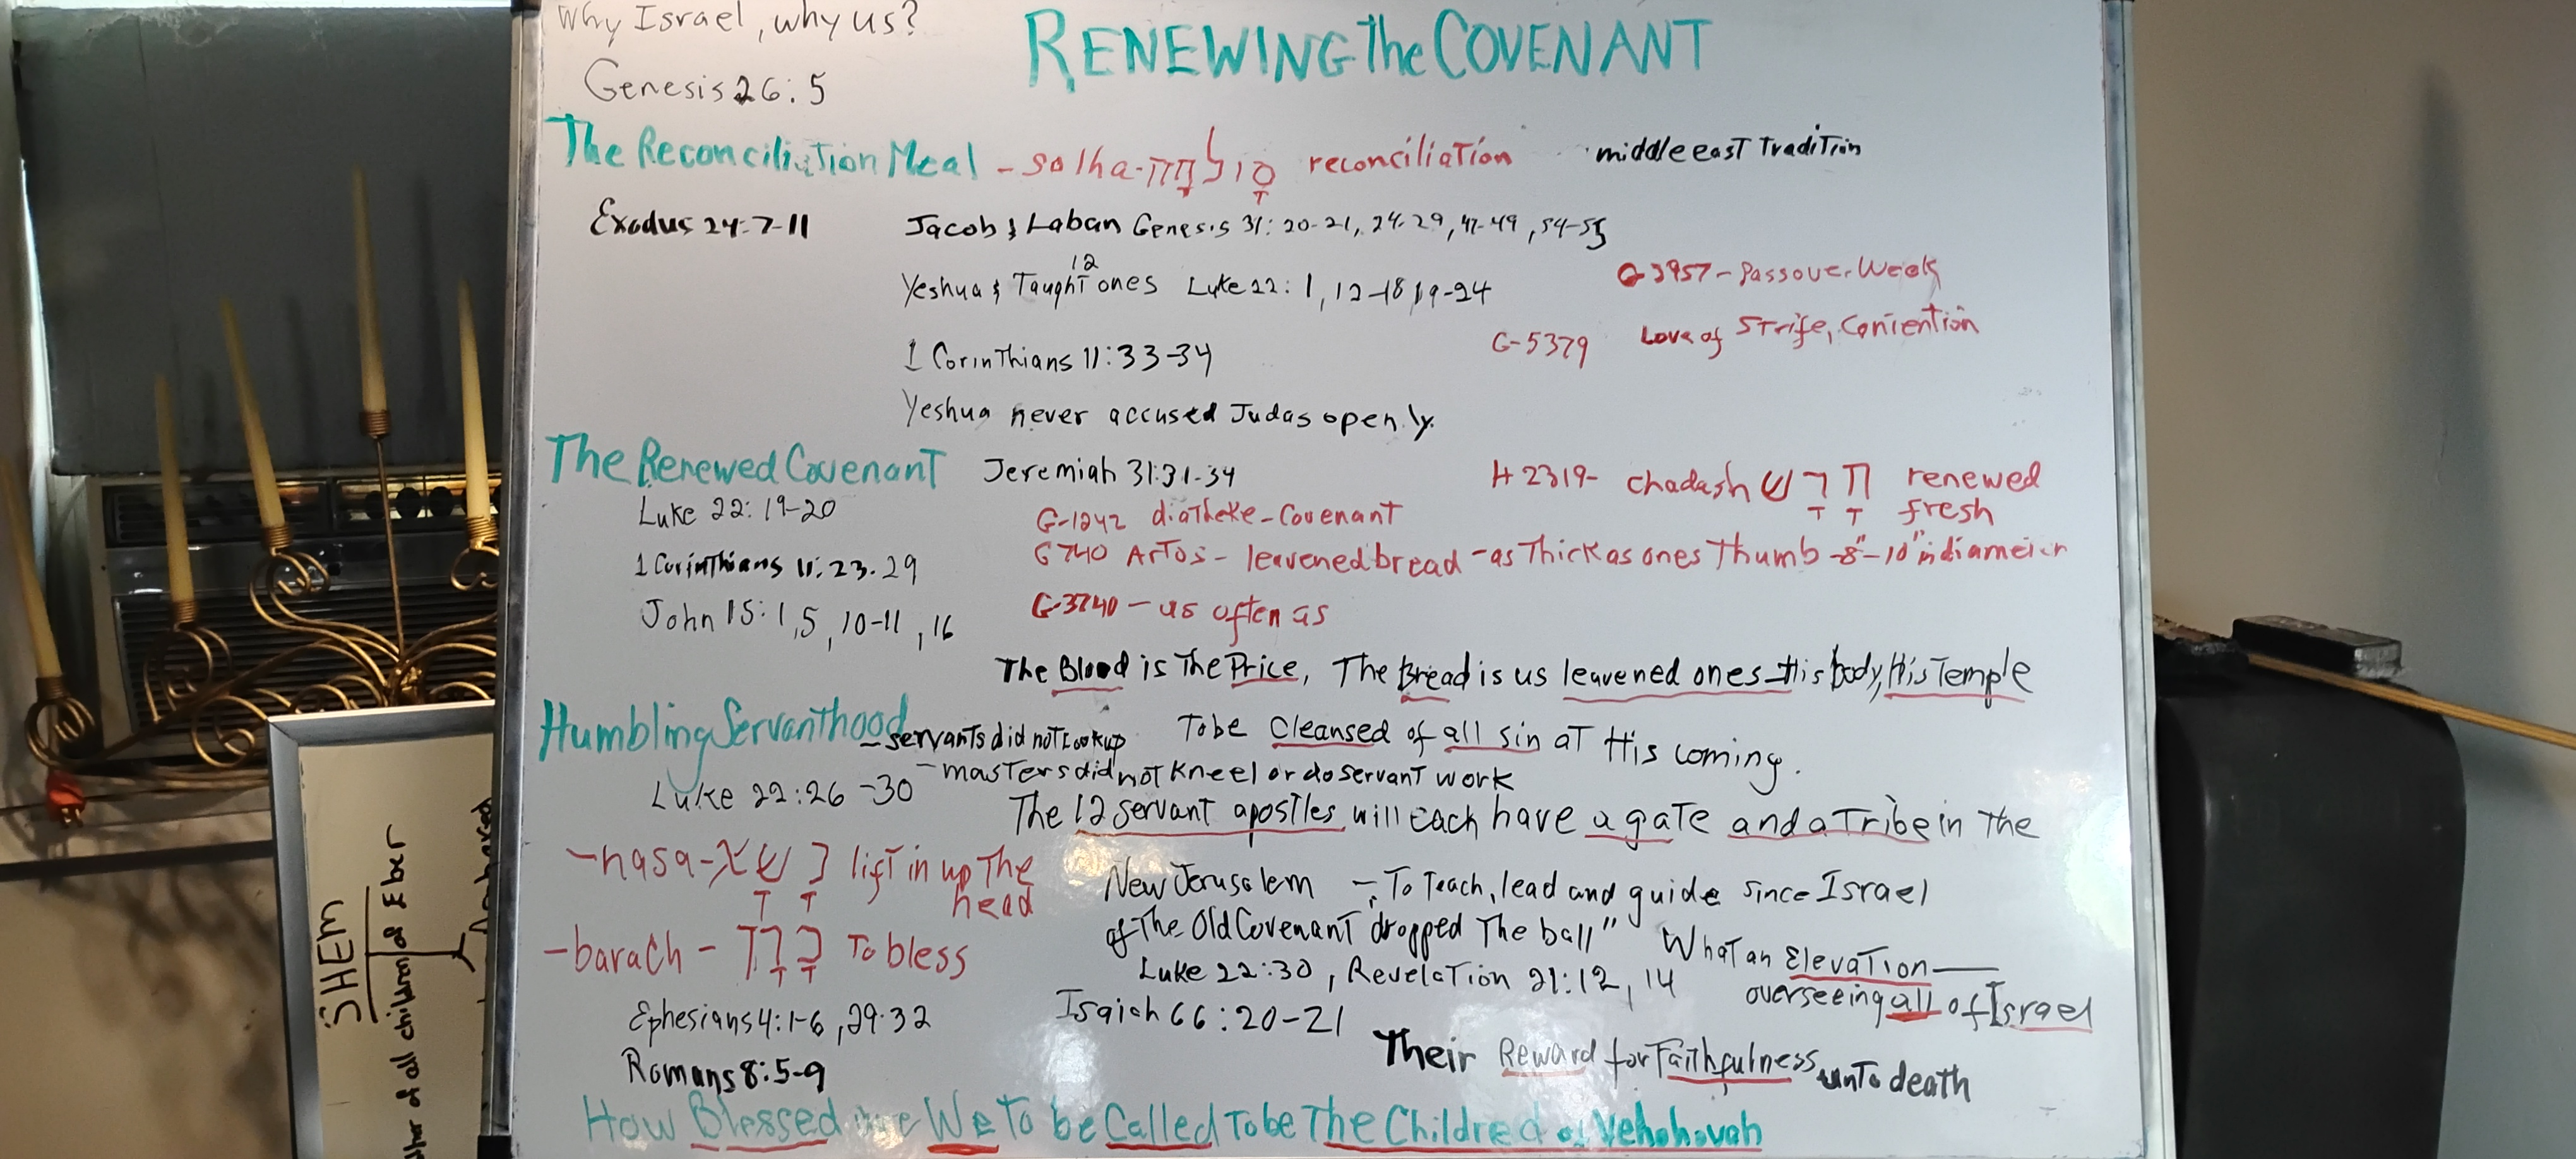 Why Israel, why us?
RENEWING The COVENANT
Genesis 26:5
The Reconciliation Meal - solha- reconciliation middle east Tradition
Exodus 24:7-11
Jacob & Laban Genesis 31: 20-21, 24-29, 47-49, 54-55
Yeshua & Taught 12 ones Luke 22: 1, 12-18 19-24
G3957 - Passover Week
G-5379 Love of Strife, Contention
1 Corinthians 11:33-34
Yeshua never accused Judas openly.
The Renewed Covenant Jeremiah 31:31-34
H2319- chadash חָדָשׁ renewed fresh
Luke 22:19-20
G-1242 diatheke - Covenant
1 Corinthians 11:23-29
G740 Artos - leavened bread - as Thick as ones Thumb -8"-10" in diameter
John 15:1,5, 10-11, 16
G-3740 - as often as
The Blood is The Price, The Bread is us leavened ones - His body, His Temple
Humbling Servanthood
- servants did not Look up
To be Cleansed of all sin at His coming.
- masters did not kneel or do servant work
Luke 22:26-30
The 12 servant apostles will each have a gate and a Tribe in The
- nasa - נָשָׂא lift in up The head
New Jerusalem - To Teach, lead and guide since Israel
of The Old Covenant "dropped The ball"
- barach - בָּרַך To bless
What an Elevation
Luke 22:30, Revelation 21:12, 14
overseeing all of Israel
Ephesians 4:1-6, 29-32
Isaiah 66:20-21
Romans 8:5-9
Their Reward for Faithfulness unto death
How Blessed are We To be Called To be The Children of Yehohovah
SHEM
of all children of Eber